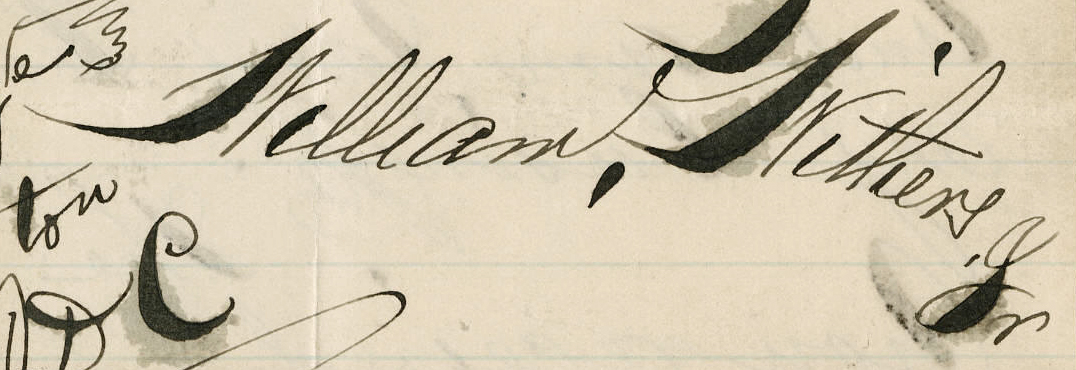 William Withers
Jr
ton
D C